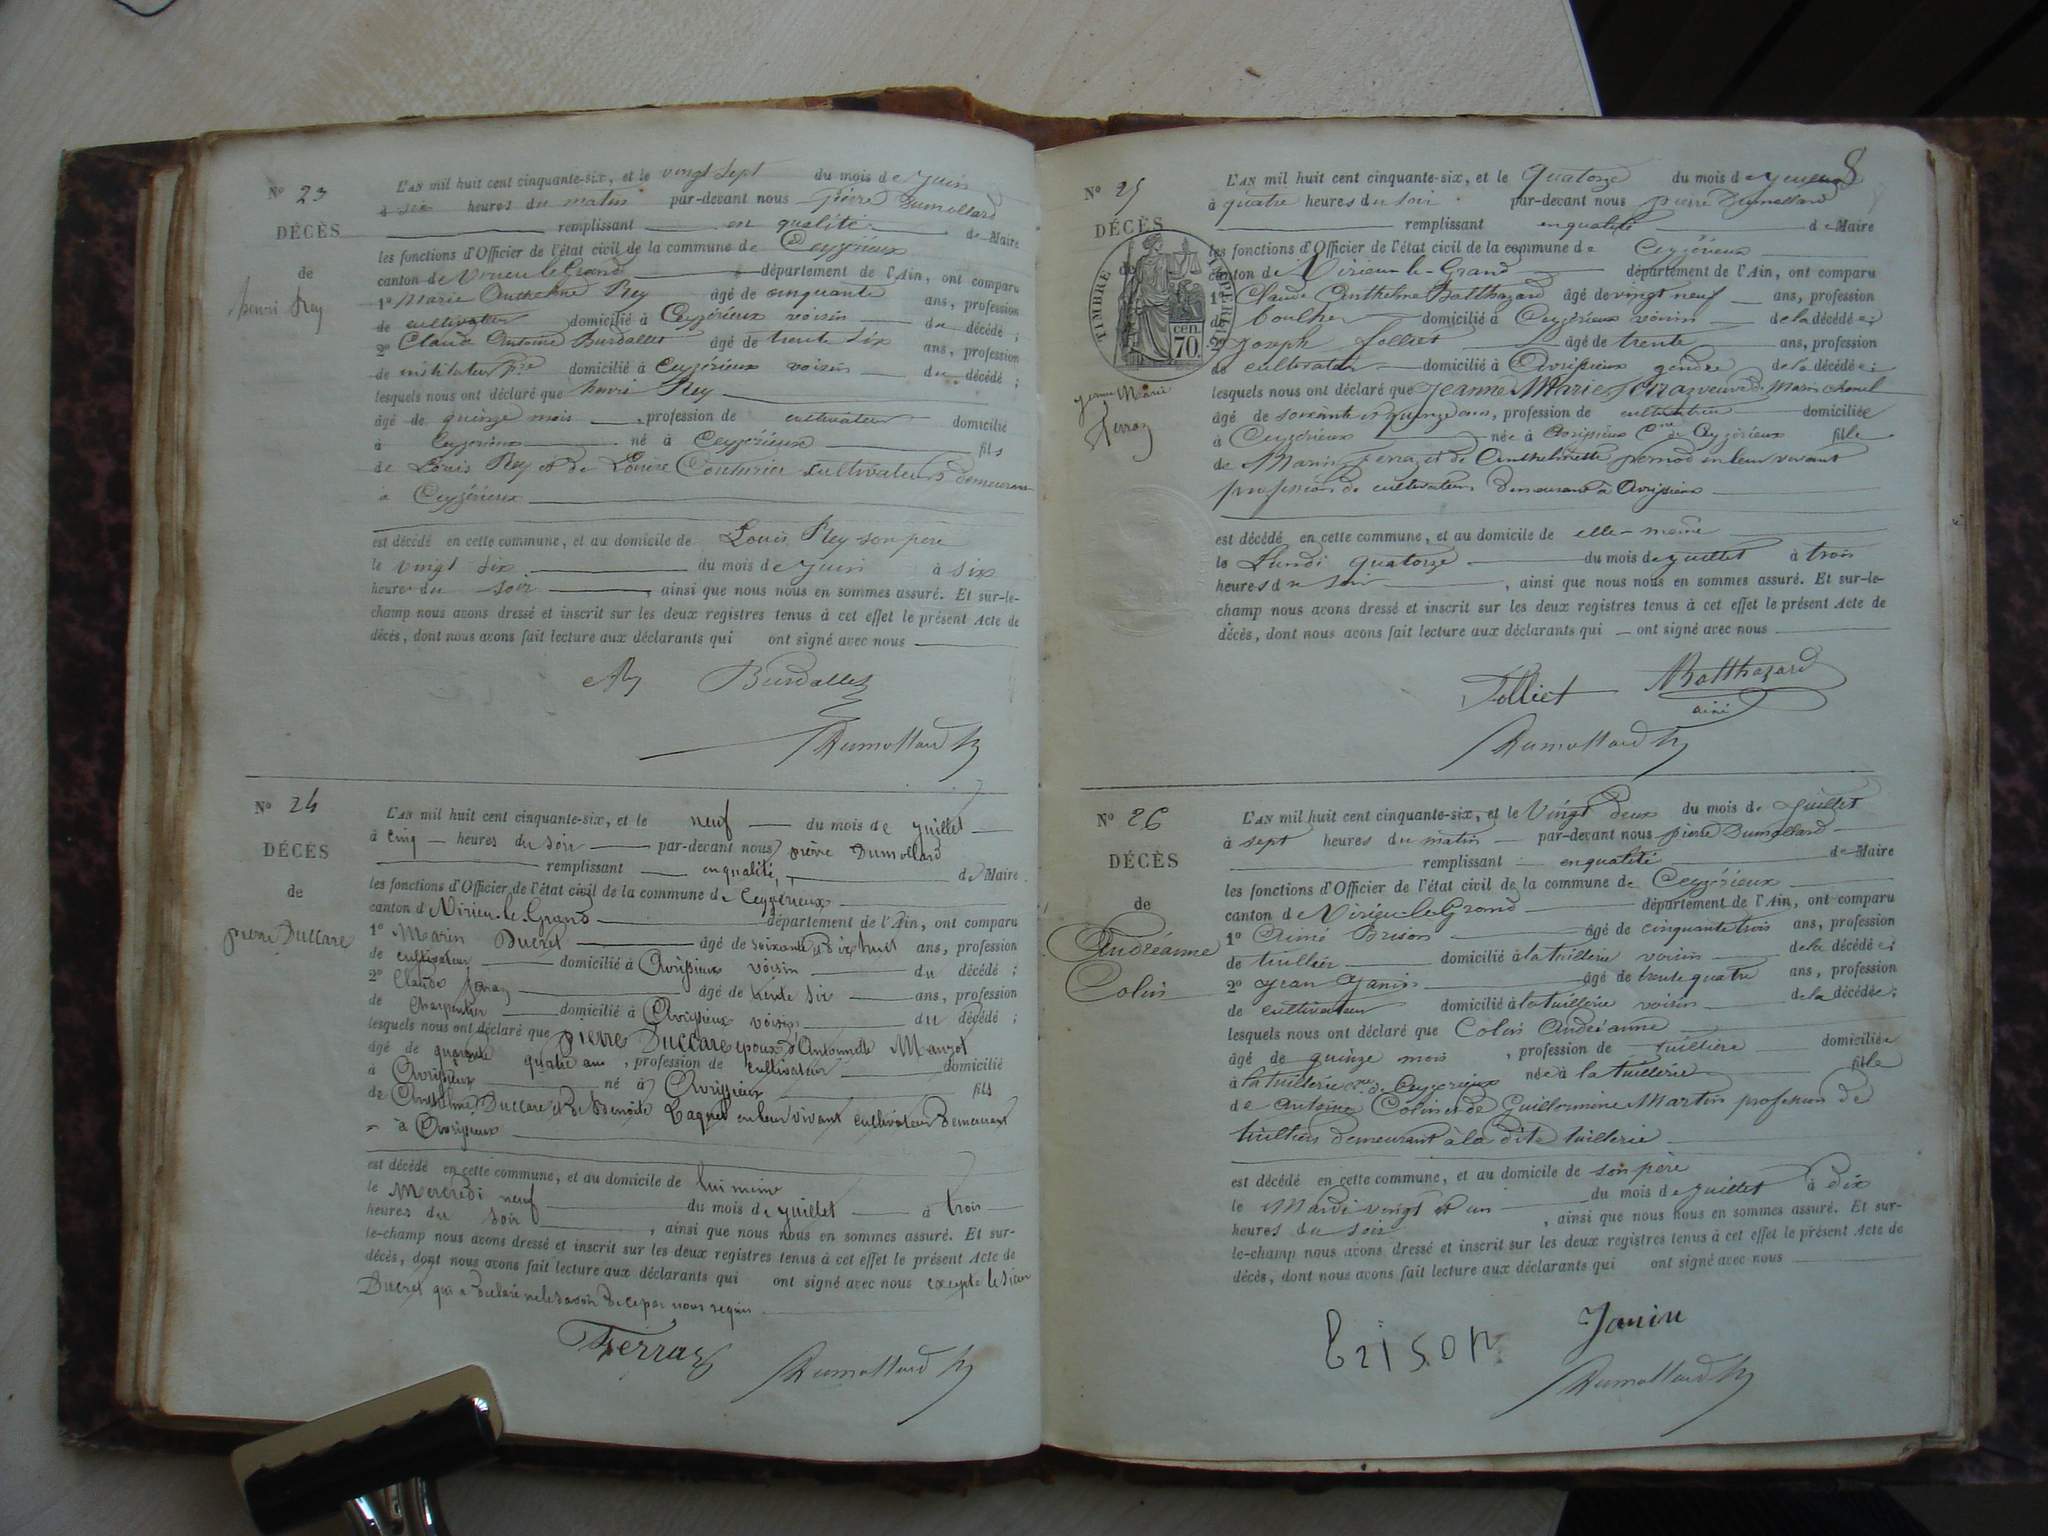 N° 23
DÉCÈS
de
henri Rey
L'AN mil huit cent cinquante-six, et le vingt sept du mois de juin
à six heures du matin par-devant nous pierre Dumollard
remplissant en qualité de Maire
les fonctions d'Officier de l'état civil de la commune de Ceyzérieux
canton de Virieu le Grand département de l'Ain, ont comparu
1° Marie Anthelme Rey âgé de cinquante ans, profession
de cultivateur domicilié à Ceyzérieux voisin du décédé ;
2° Claude Antoine Burdallet âgé de trente six ans, profession
de instituteur domicilié à Ceyzérieux voisin du décédé ;
lesquels nous ont déclaré que henri Rey
âgé de quinze mois, profession de cultivateur domicilié
à Ceyzérieux né à Ceyzérieux fils
de Louis Rey et de Louise Couturier cultivateurs demeurant
à Ceyzérieux
est décédé en cette commune, et au domicile de Louis Rey son père
le vingt six du mois de juin à six
heures du soir, ainsi que nous nous en sommes assuré. Et sur-le-
champ nous avons dressé et inscrit sur les deux registres tenus à cet effet le présent Acte de
décès, dont nous avons fait lecture aux déclarants qui ont signé avec nous
Rey Burdallet
Dumollard
N° 24
DÉCÈS
de
pierre Duccare
L'AN mil huit cent cinquante-six, et le neuf du mois de juillet
à cinq heures du soir par-devant nous pierre Dumollard
remplissant en qualité, de Maire
les fonctions d'Officier de l'état civil de la commune de Ceyzerieux
canton de Virieu-le-Grand département de l'Ain, ont comparu
1° Marin Ducret âgé de soixante et dix huit ans, profession
de cultivateur domicilié à Avrissieux voisin du décédé ;
2° Claude ferraz âgé de trente six ans, profession
de charpentier domicilié à Avrissieux voisin du décédé ;
lesquels nous ont déclaré que pierre Duccare époux d'Antoinette
âgé de quarante quatre ans, profession de cultivateur domicilié
à Avrissieux né à Avrissieux fils
de Anthelme Duccare et de Benoite en leur vivant cultivateur demeurant
à Avrissieux
est décédé en cette commune, et au domicile de lui même
le Mercredi neuf du mois de juillet à trois
heures du soir, ainsi que nous nous en sommes assuré. Et sur-
le-champ nous avons dressé et inscrit sur les deux registres tenus à cet effet le présent Acte de
décès, dont nous avons fait lecture aux déclarants qui ont signé avec nous excepté le sieur
Ducret qui a déclaré ne le savoir de ce par nous requis
Ferraz Dumollard
8
N° 25
DÉCÈS
de
TIMBRE IMPERIAL
70 cen.
jeanne Marie
ferraz
L'AN mil huit cent cinquante-six, et le Quatorze du mois de
à quatre heures du soir par-devant nous pierre Dumollard
remplissant en qualité de Maire
les fonctions d'Officier de l'état civil de la commune de Ceyzérieux
canton de Virieu-le-Grand département de l'Ain, ont comparu
1° Claude Anthelme Balthazard âgé de vingt neuf ans, profession
de domicilié à Ceyzérieux voisin de la décédée ;
2° joseph folliet âgé de trente ans, profession
de cultivateur domicilié à Avrissieux gendre de la décédée ;
lesquels nous ont déclaré que jeanne Marie ferraz veuve de Marin
âgé de soixante et quinze ans, profession de cultivatrice domiciliée
à Ceyzérieux née à Avrissieux Cne de Ceyzérieux fille
de Marin ferraz et de Anthelmette en leur vivant
profession de cultivateurs demeurant à Avrissieux
est décédé en cette commune, et au domicile de elle-même
le Lundi quatorze du mois de juillet à trois
heures du soir, ainsi que nous nous en sommes assuré. Et sur-le-
champ nous avons dressé et inscrit sur les deux registres tenus à cet effet le présent Acte de
décès, dont nous avons fait lecture aux déclarants qui ont signé avec nous
Folliet Balthazard
ainé
Dumollard
N° 26
DÉCÈS
de
Andréanne
Colin
L'AN mil huit cent cinquante-six, et le Vingt deux du mois de juillet
à sept heures du matin par-devant nous pierre Dumollard
remplissant en qualité de Maire
les fonctions d'Officier de l'état civil de la commune de Ceyzérieux
canton de Virieu-le-Grand département de l'Ain, ont comparu
1° Aimé Brison âgé de cinquante trois ans, profession
de tuillier domicilié à la tuillerie voisin de la décédée ;
2° jean janin âgé de trente quatre ans, profession
de cultivateur domicilié à la tuillerie voisin de la décédée ;
lesquels nous ont déclaré que Colin Andréanne
âgé de quinze mois, profession de tuilliere domiciliée
à la tuillerie cne de Ceyzerieux née à la tuillerie fille
de Antoine Colin et de Guillermine Martin profession de
tuilliers demeurant à la dite tuillerie
est décédé en cette commune, et au domicile de son père
le Mardi vingt et un du mois de juillet à dix
heures du soir, ainsi que nous nous en sommes assuré. Et sur-
le-champ nous avons dressé et inscrit sur les deux registres tenus à cet effet le présent Acte de
décès, dont nous avons fait lecture aux déclarants qui ont signé avec nous
Brison Janin
Dumollard